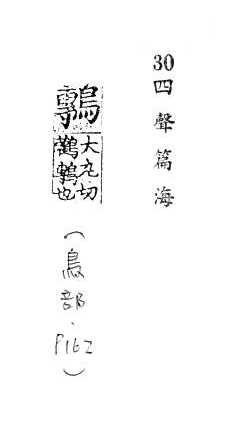 30四聲篇海
鷒
大丸切
鸛鷒也
(鳥部·P162)